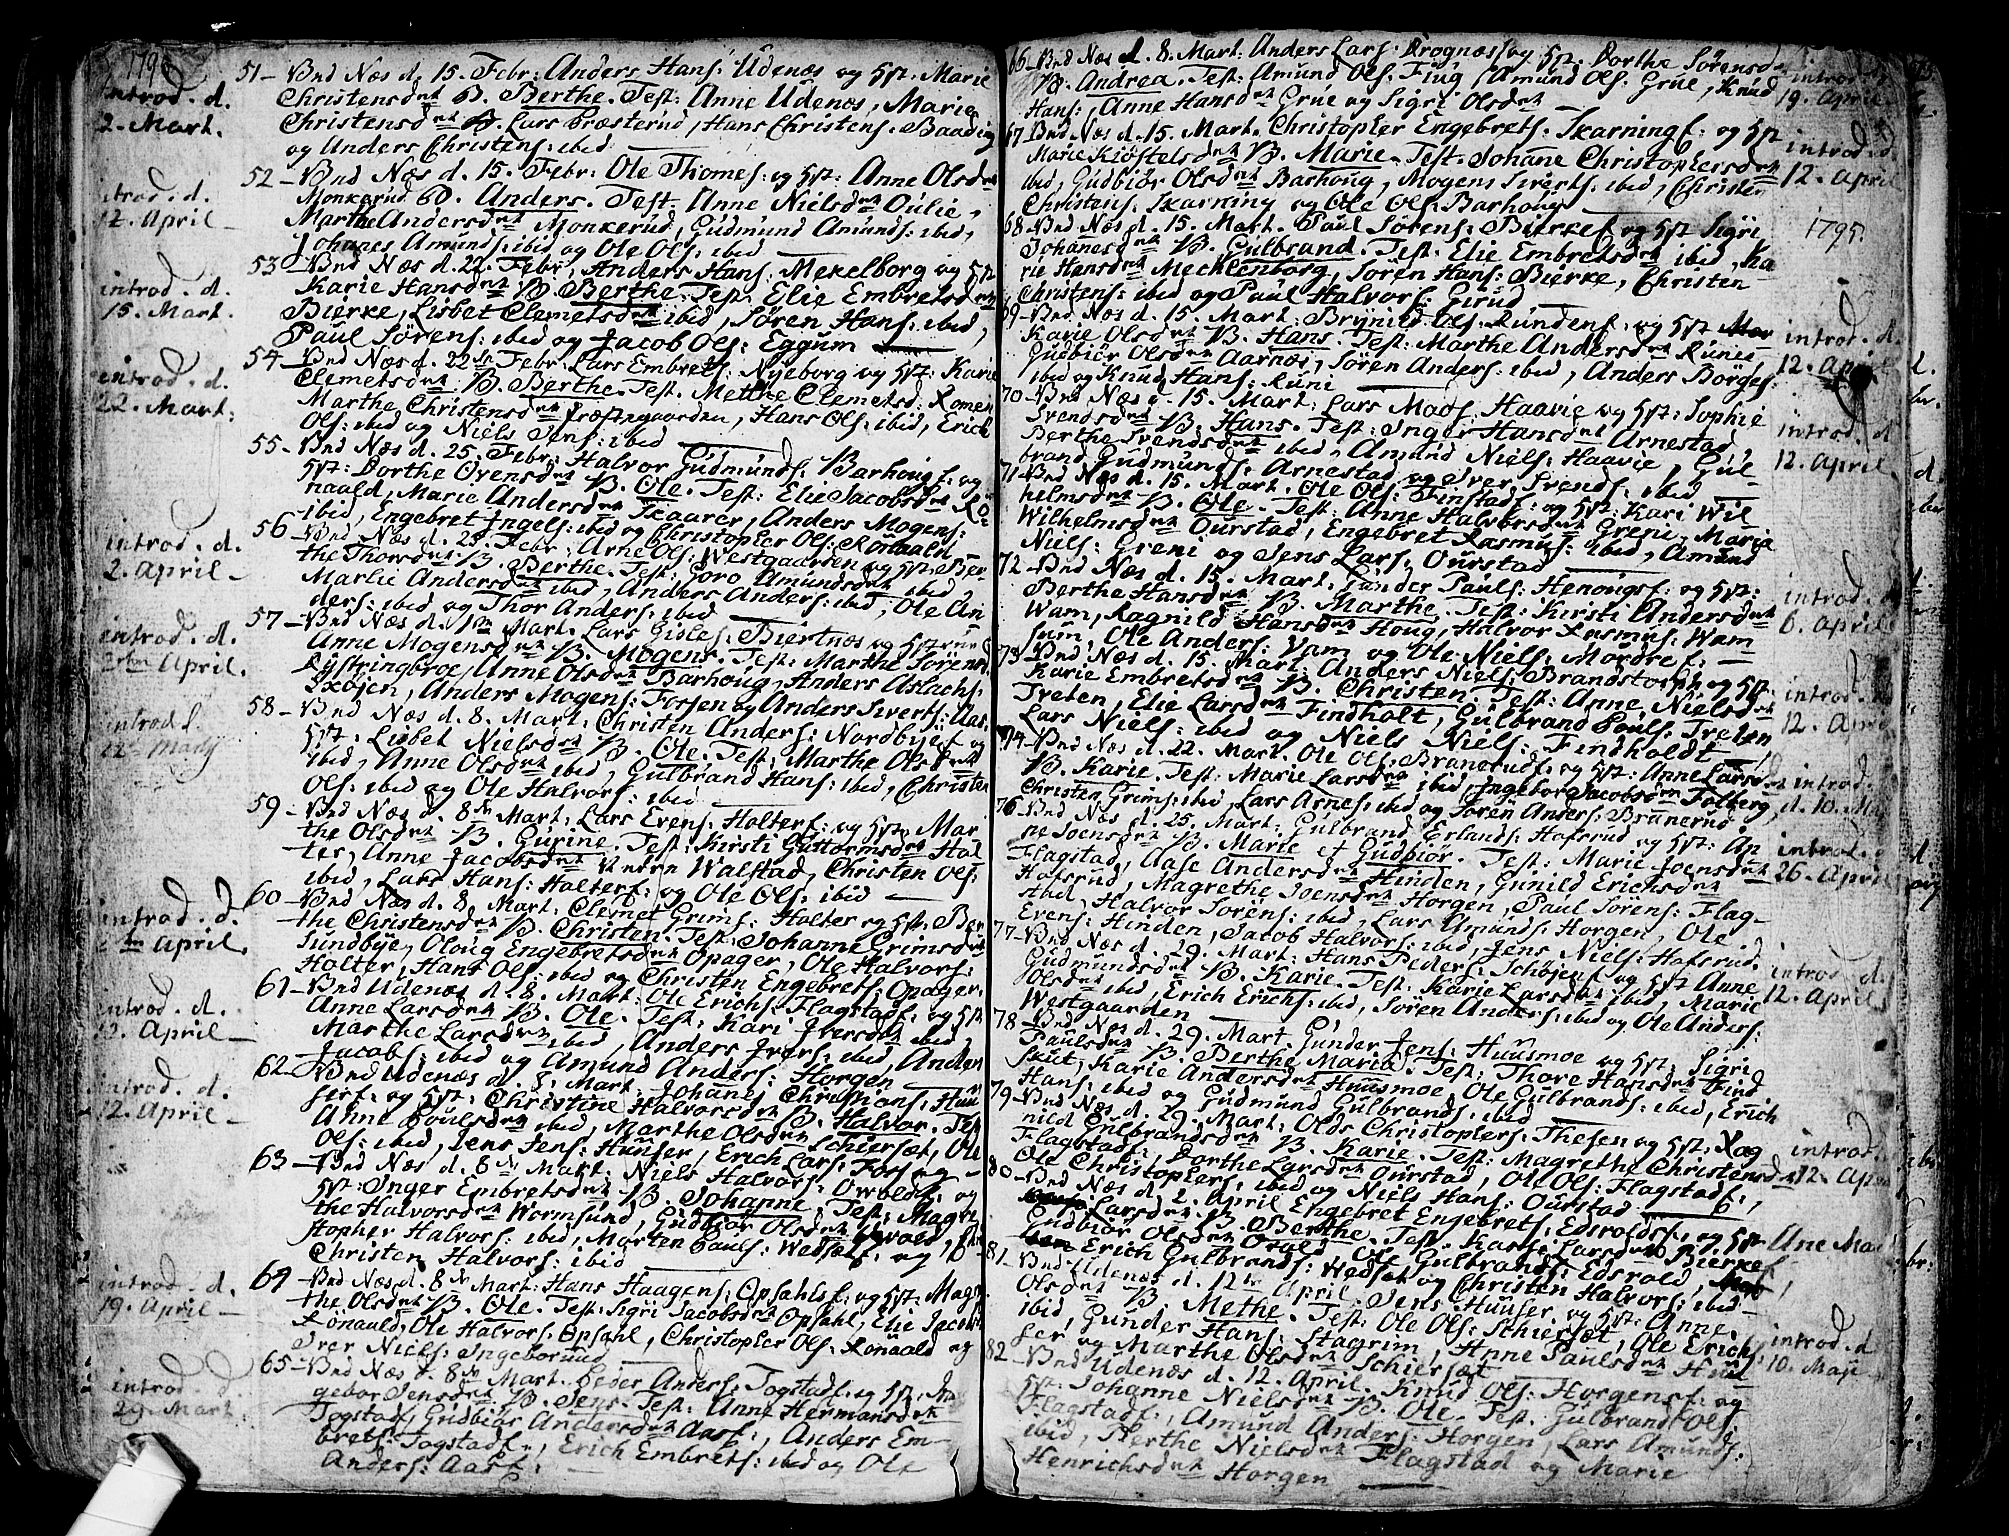 1795
introd. d.
2. Mart.
51 – Bnd Næs d. 15. Febr: Anders Hans: Udenæs og Hst: Marie
Christensdtr B. Berthe. Test: Anne Udenæs, Marie
Christensdtr Lars Præsterud, Hans Christens: Baading
og Anders Christens: ibid
introd. d.
12. April
52 – Bnd Næs d. 15. Febr: Ole Thomes: og Hst: Anne Olsdtr
Monkerud B. Anders. Test. Anne Nielsdtr Oulie,
Marthe Andersdtr Monkerud, Gudmund Amunds: ibid,
Johanes Amunds: ibid og Ole Ols: ibid
introd. d.
15. Mart.
53 – Bnd Næs d. 22. Febr, Anders Hans: Mekelborg og Hst
Karie Hansdtr B. Berthe. Test. Elie Embretsdtr
Bierke, Lisbet Clemetsdtr ibid, Søren Hans: ibid,
Paul Sørens: ibid og Jacob Ols: Eggum
introd. d.
22. Mart.
54 – Bnd Næs d. 22 Febr. Lars Embrets: Nyeborg og Hst: Karie
Clemetsdtr. B. Berthe. Test. Methe Clemetsd: Romen
Marthe Christensdtr Præstegaarden, Hans Ols: ibid, Erich
Ols: ibid og Niels Jens: ibid
55 – Bnd Næs d. 25. Febr: Halvor Gudmunds: Barhougs: og
Hst: Dorthe Ovensdtr B. Ole. Test: Elie Jacobsdtr Rö-
naald, Marie Andersdtr Skaarer, Anders Mogens:
ibid, Engebret Ingels: ibid og Christopher Ols: Rönaald
introd. d.
2. April
56 – Bnd Næs d. 25. Febr: Arne Ols: Westgaarden og Hst: Ber-
the Thorsdtr B. Berthe. Test: Goro Amundsdtr ibid,
Marlie Andersdtr ibid, Anders Anders: ibid, Ole An
ders: ibid og Thor Anders: ibid
introd. d.
April.
57 – Bnd Næs d. 1 Mart. Lars Gisles: Biertnæs og Hst
Anne Mogensdtr B. Mogens. Test: Marthe Sörens
Rystringbroe, Anne Olsdtr Barhoug, Anders Aslachs:
Skøjen, Anders Mogens: Fossen og Anders Siverts: Aas.
introd.
58 – Bnd Næs d. 8. Mart. Christen Anders: Nordbyes og
Hst: Lisbet Nielsdtr B. Ole. Test: Marthe Olsdtr
ibid, Anne Olsdtr ibid, Gulbrand Hans: ibid, Christen
Ols: ibid og Ole Halvors: ibid
59 – Bnd Næs d. 8 Mart: Lars Evens: Halters: og Hst: Mar
the Olsdtr B. Gurine. Test: Kirsti Guttormsdtr Hal
ter, Anne Jacobsdtr Walstad, Christen Ols:
ibid, Lars Hans: Halters: og Ole Ols: ibid
introd. d.
April.
60 – Bnd Næs d. 8. Mart: Clemet Grims: Halter og Hst: Ber
the Christensdtr B. Christen. Test. Johanne Grimsdtr
Sundbye, Oloug Engebretsdtr Opager, Ole Halvors:
Holter, Hans Ols: ibid og Christen Engebrets: Opager.
introd. d.
12. April
61 – Bnd Udenæs d. 8. Mart: Ole Erichs: Flagstads: og Hst
Anne Larsdtr B. Ole. Test. Kari Iversdtr ibid,
Marthe Larsdtr ibid, Anders Ivers: ibid, Anders
Jacobs: ibid og Amund Anders: Horgen
introd. d.
12. April
62 – Bnd Udenæs d. 8. Mart. Johanes Christians: Huu
sers: og Hst: Christine Halvorsdtr B. Halvor. Test
Anne Poulsdtr ibid, Marthe Olsdtr Schierset, Ole
Ols: ibid, Jens Jens: Huuser, Erich Lars: Fors og
63 – Bnd Næs d. 8 Mart. Niels Halvors: Owoldts: og
Hst: Inger Embretsdtr B. Johanne. Test: Magre
the Halvorsdtr Wormsund, Gudbiör Olsdtr Uvold, Chri
stopher Halvors: ibid, Morten Pauls: Wedsets: og
Christen Halvors: ibid
introd. d.
19. April
64 – Bnd Næs d. 8 Mart: Hans Haagens: Opsahls: og Hst: Magre
the Olsdtr B. Ole. Test: Sigri Jacobsdtr Opsahl, Elie Jacobs
Rönauld, Ole Halvors: Opsahl, Christopher Ols: Rönaald og
Iver Niels: Ingeborrud
introd. d.
29. Mart.
65 – Bnd Næs d. 8 Mart. Peder Anders: Togstads: og Hst: In
gebor Jensdtr B. Jens. Test. Anne Hermansdtr
Togstad, Gudbiör Andersdtr Aass:, Anders Em-
brets: Togstads:, Erich Embrets: ibid og Ole
Anders: Aass:
66 – Bnd Næs d. 8. Mart: Anders Lars: Drognæss og Hst: Dorthe Sörensd.
B. Andrea. Test: Amund Ols: Fiug (Amund Ols: Grue, Knud
Hans:, Anne Hansdtr Grue og Sigri Olsdtr
introd.
19. April
67 Bnd Næs d. 15. Mart. Christopher Engebrets: Skarnings: og Hst
Marie Kiøstelsdtr B. Marie. Test. Johane Christophersdtr
ibid, Gudbiör Olsdtr Barhoug, Mogens Siverts: ibid, Christen
Christens: Skarning og Ole Ols: Barhoug
introd. d.
12. April
68 – Bnd Næs d. 15. Mart. Paul Sörens: Bierkes og Hst Sigri
Johanesdtr B. Gulbrand. Test: Elie Embretsdtr ibid, Ka
rie Hansdtr Mecklenborg, Sören Hans: Bierke, Christen
Christens: ibid og Paul Halvors: Girud
1795.
69 – Bnd Næs d. 15. Mart. Brynild Ols: Rundens: og Hst
Karie Olsdtr B. Hans. Test: Marthe Andersdtr Rune,
Gudbiör Olsdtr Aarnæs, Sören Anders: ibid, Anders Börges:
ibid og Knud Hans: Rune
introd. d.
12. April
70 – Bnd Næs d. 15. Mart: Lars Mads: Haavie og Hst: Sophie
Svendsdtr B. Hans. Test: Inger Hansdtr Arnestad,
Berthe Svendsdtr ibid, Amund Niels: Haavie, Gul-
brand Gudmunds: Arnestad og Iver Svends: ibid
introd. d.
12. April.
71 – Bnd Næs d. 15. Mart. Ole Ols: Finstads: og Hst: Kari Wil
helmsdtr B. Ole. Test: Anne Halvorsdtr Greni, Maria
Wilhelmsdtr Ourstad, Engebret Rasmus: ibid, Amund
Niels: Greni og Jens Lars: Ourstad
72 – Bnd Næs d. 15. Mart. Gunder Pauls: Henougs: og Hst:
Berthe Hansdtr B. Marthe. Test: Kirsti Andersdtr
Wam, Ragnild Hansdtr Houg, Halvor Rasmus: Wam
Ole Anders: Vam og Ole Niels: Mordre:
introd.
6. April
73 – Bnd Næs d. 15. Mart. Anders Niels: Brandstorps og Hst.
Karie Embretsdtr B. Christen. Test: Anne Nielsdtr
Treten, Elie Larsdtr Findholt, Gulbrand Pouls: Treten,
Lars Niels: ibid og Niels Niels: Findholdt
introd.
12. April
74 – Bnd Næs d. 22. Mart. Ole Ols: Branerud: og Hst: Anne Larsd
B. Karie. Test: Marie Larsdtr ibid, Ingebor Jacobsdtr Tolberg,
Christen Grims: ibid, Lars Arnes: ibid og Sören Anders: Brunerud
introd.
d. 10. Maj
76 – Bnd Næs d. 25. Mart. Gulbrand Erlands: Hofsrud og Hst: An
ne Joensdtr B. Marie et Gudbiör. Test: Marie Joensdtr
Flagstad, Aase Andersdtr Hinden, Gunild Erichsdtr
Hofsrud, Magrethe Joensdtr Horgen, Paul Sörens: Flag-
stad, Halvor Sörens: ibid, Lars Amunds: Horgen, Ole
Evens: Hinden, Jacob Halvors: ibid, Jens Niels: Hofsrud.
introd.
26. April
77 – Bnd Næs d. 29. Mart: Hans Peders: Schöjens og Hst Anne
Gudmundsdtr B. Karie. Test. Karie Larsdtr ibid, Marie
Olsdtr ibid, Erich Erichs: ibid, Sören Anders: ibid og Ole Anders:
Westgaarden
introd. d.
12. April
78 – Bnd Næs d. 29. Mart. Gunder Jens: Huusmoe og Hst. Sigri
Paulsdtr B. Berthe Maria. Test: Thore Hansdtr Find
skut, Karie Andersdtr Huusmoe Ole Gulbrands: ibid, Erich
Hans: ibid og Gudmund Gulbrands: ibid
79 – Bnd Næs d. 29. Mart. Olds Christophers: Thesen og Hst: Rag
nild Gulbrandsdtr B. Karie. Test: Magrethe Christensdtr
Flagstad:, Dorthe Larsdtr Ourstad, Ole Ols: Flagstads:,
Ole Christophers: ibid og Niels Hans: Ourstad
introd.
12. April
80 – Bnd Næs d. 2. April Engebret Engebrets: Edsvolds: og Hst
Larsdtr B. Berthe. Test. Karie Larsdtr Bierke
Gudbiör Olsdtr Ovold, Ole Gulbrands: Edsvold,
Erich Gulbrands: Wedset og Christen Halvors: ibid
Une Maj
81 – Bnd Udenæs d. 12 April. Jens Huuser og Hst: Anne
Olsdtr B. Methe. Test: Ole Ols: Schierset, Ole Erichs:
ibid, Gunder Hans: Stagrim, Anne Paulsdtr Huu
ser og Marthe Olsdtr Schierset
introd. d.
10. Maji
82 – Bnd Udenæs d. 12. April. Knud Ols: Horgens: og
Hst: Johanne Nielsdtr B. Ole. Test. Gulbrand Ols:
Flagstads:, Amund Anders: Horgen, Lars Amunds:
ibid, Berthe Nielsdtr Flagstad og Marie
Henrichsdtr Horgen